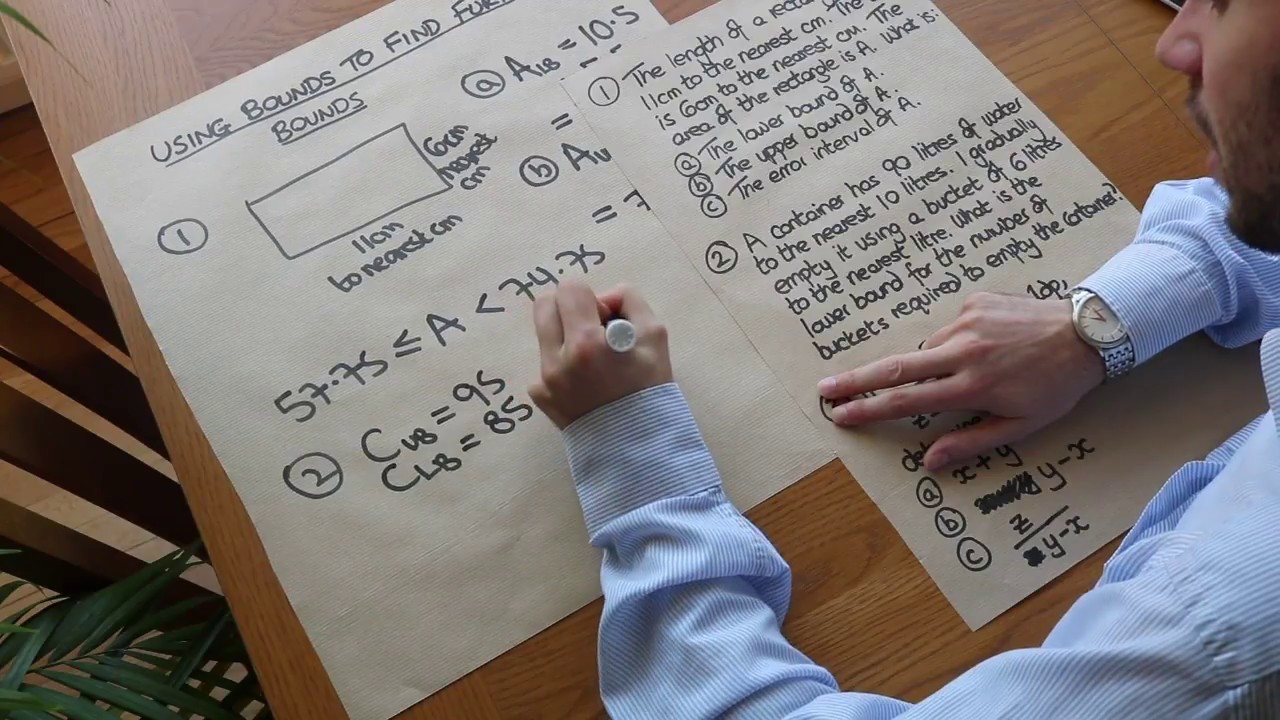 USING BOUNDS TO FIND
BOUNDS
①
6cm
nearest
cm
11cm
to nearest cm
ⓐ A_LB = 10.5
=
ⓑ A_U
= 7
57.75 ≤ A < 74.75
② C_UB = 95
C_LB = 85
① The length of a
11cm to the nearest cm. The
is 6cm to the nearest cm. The
area of the rectangle is A. What is:
ⓐ The lower bound of A.
ⓑ The upper bound of A.
ⓒ The error interval of A.
② A container has 90 litres of water
to the nearest 10 litres. I gradually
empty it using a bucket of 6 litres
to the nearest litre. What is the
lower bound for the number of
buckets required to empty the container?
1dp
z=
ⓐ x+y
ⓑ y-x
ⓒ z
y-x